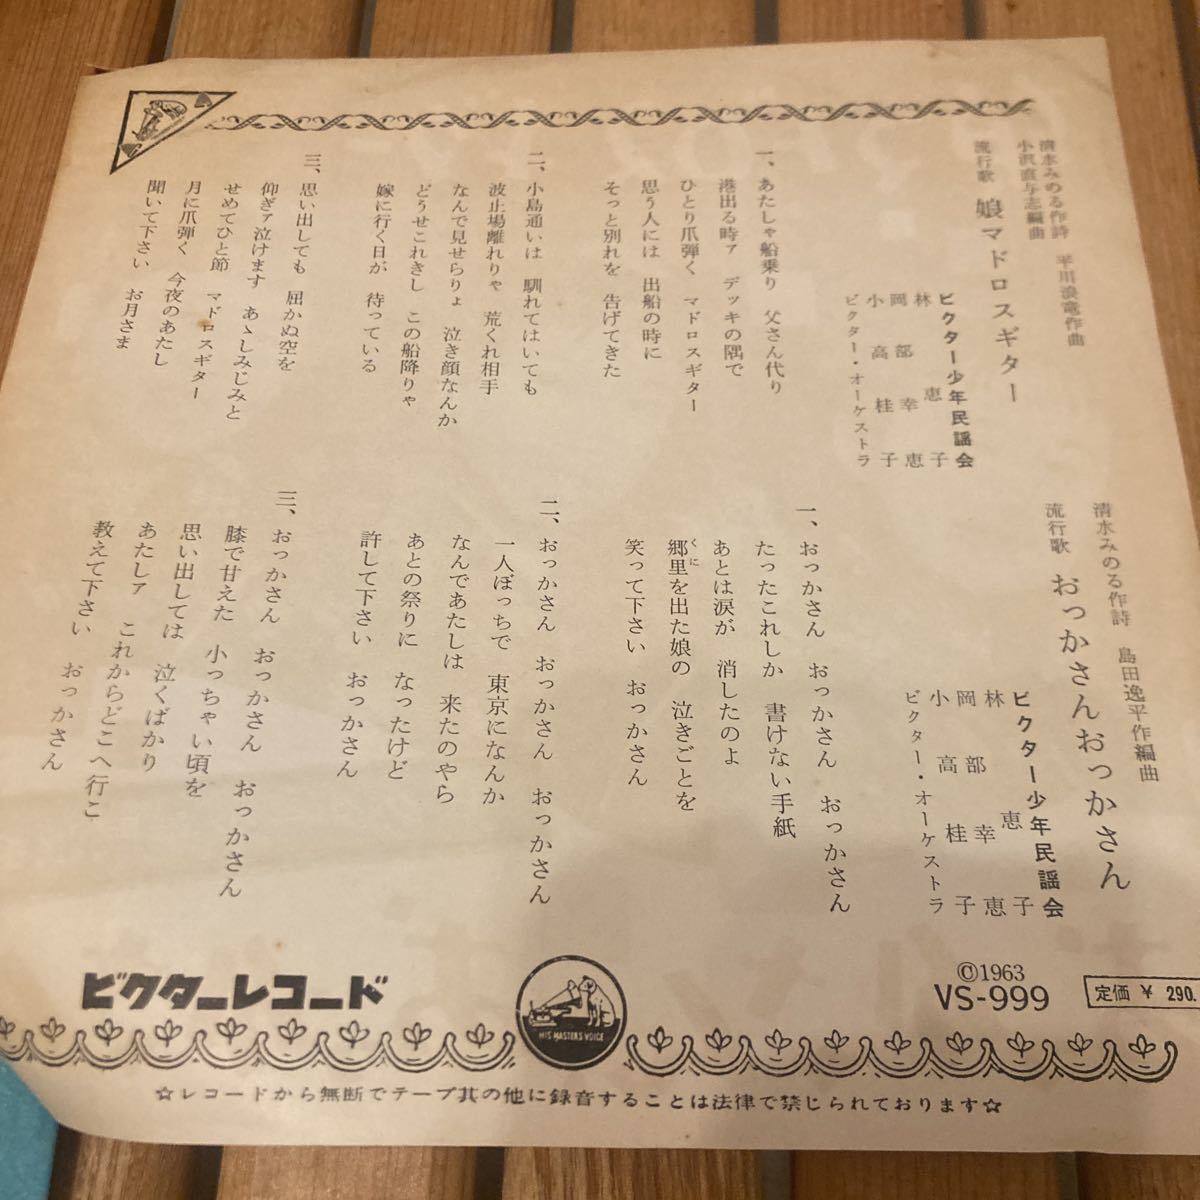 清水みのる作詩　平川浪竜作曲
小沢直与志編曲
流行歌　娘マドロスギター
ビクター少年民謡会
林　恵子
岡部幸恵
小高桂子
ビクター・オーケストラ
一、あたしゃ船乗り　父さん代り
港出る時ァ　デッキの隅で
ひとり爪弾く　マドロスギター
思う人には　出船の時に
そっと別れを　告げてきた
二、小島通いは　馴れてはいても
波止場離れりゃ　荒くれ相手
なんで見せらりょ　泣き顔なんか
どうせこれきし　この船降りゃ
嫁に行く日が　待っている
三、思い出しても　届かぬ空を
仰ぎァ泣けます　あゝしみじみと
せめてひと節　マドロスギター
月に爪弾く　今夜のあたし
聞いて下さい　お月さま
清水みのる作詩　島田逸平作編曲
流行歌　おっかさんおっかさん
ビクター少年民謡会
林　恵子
岡部幸恵
小高桂子
ビクター・オーケストラ
一、おっかさん　おっかさん　おっかさん
たったこれしか　書けない手紙
あとは涙が　消したのよ
郷里を出た娘の　泣きごとを
くに
笑って下さい　おっかさん
二、おっかさん　おっかさん　おっかさん
一人ぼっちで　東京になんか
なんであたしは　来たのやら
あとの祭りに　なったけど
許して下さい　おっかさん
三、おっかさん　おっかさん　おっかさん
膝で甘えた　小っちゃい頃を
思い出しては　泣くばかり
あたしァ　これからどこへ行こ
教えて下さい　おっかさん
ビクターレコード
HIS MASTER'S VOICE
©1963
VS-999
定価 ¥ 290.
☆レコードから無断でテープ其の他に録音することは法律で禁じられております☆